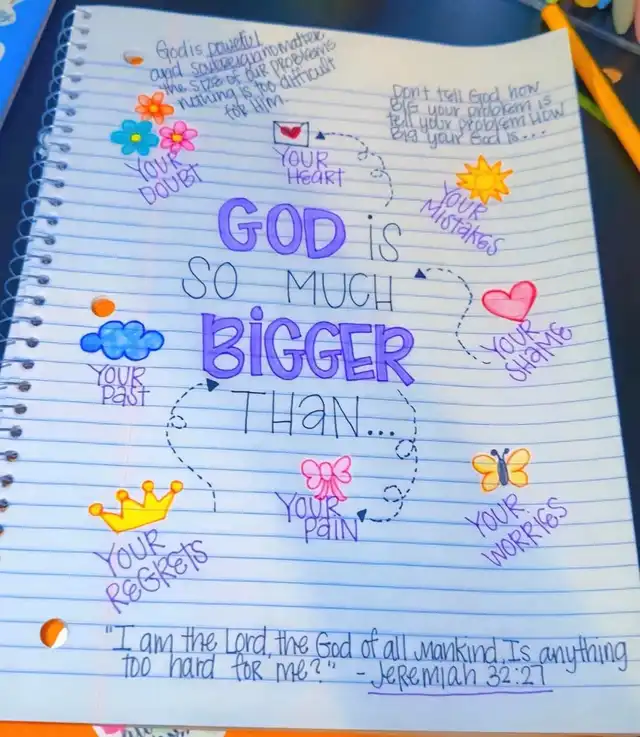 God is powerful
and soverign no matter
the size of our problems
nothing is too difficult
for Him.
Don't tell God how
big your problem is
tell your problem How
big your God is...
YOUR
DOUBT
YOUR
HEART
YOUR
MISTAKES
GOD is
SO MUCH
BiGGER
THaN...
YOUR
SHAME
YOUR
Past
YOUR
PaiN
YOUR
WORRIES
YOUR
REGRETS
"I am the Lord, the God of all mankind. Is anything
too hard for me?" - Jeremiah 32:27